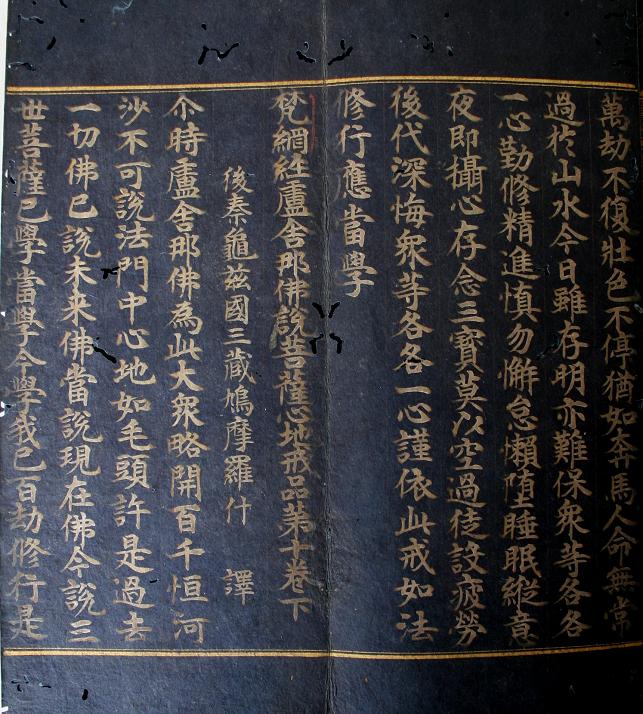 萬劫不復壯色不停猶如奔馬人命無常
過於山水今日雖存明亦難保衆等各各
一心勤修精進愼勿懈怠懶墮睡眠縱意
夜即攝心存念三寶莫以空過徒設疲勞
後代深悔衆等各各一心謹依此戒如法
修行應當學
梵網経盧舍那佛說菩薩心地戒品苐十卷下
後秦龜茲國三藏鳩摩羅什 譯
尒時盧舍那佛為此大衆略開百千恒河
沙不可說法門中心地如毛頭許是過去
一切佛已說未来佛當說現在佛今說三
世菩薩已學當學今學我已百劫修行是